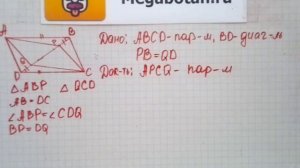 Megabotan.ru
A
B
P
Q
D
C
Дано: ABCD-пар-м, BD-диаг-ль
PB=QD
Док-ть: APCQ - пар-м
△ ABP △ QCD
AB=DC
∠ABP=∠CDQ
BP=DQ